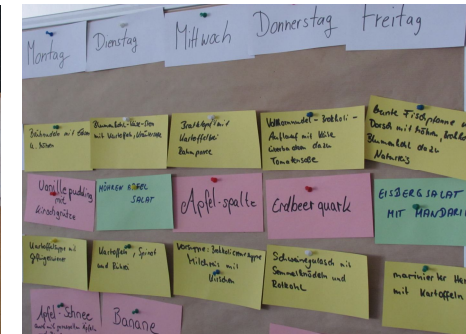 Montag
Dienstag
Mittwoch
Donnerstag
Freitag
mit
u. Möhren
Blumenkohl-Käse-
mit Kartoffeln,
Bratklopse mit
Kartoffelbrei
Vollkornnudel-Brokkoli-
Auflauf mit Käse
dazu
Tomatensoße
Bunte Fischpfanne
Dorsch mit Möhren,
Blumenkohl dazu
Naturreis
Vanillepudding
mit
Kirschgrütze
MÖHREN APFEL
SALAT
Apfel-spalte
Erdbeerquark
EISBERGSALAT
MIT MANDARI
Kartoffelsuppe mit
Kartoffeln, Spinat
und Rührei
Vorsuppe: Brokkolicremesuppe
Milchreis mit
Kirschen
Schweinegulasch mit
Semmelknödeln und
Rotkohl
marinierter
mit Kartoffeln
Apfel-Schnee
Banane